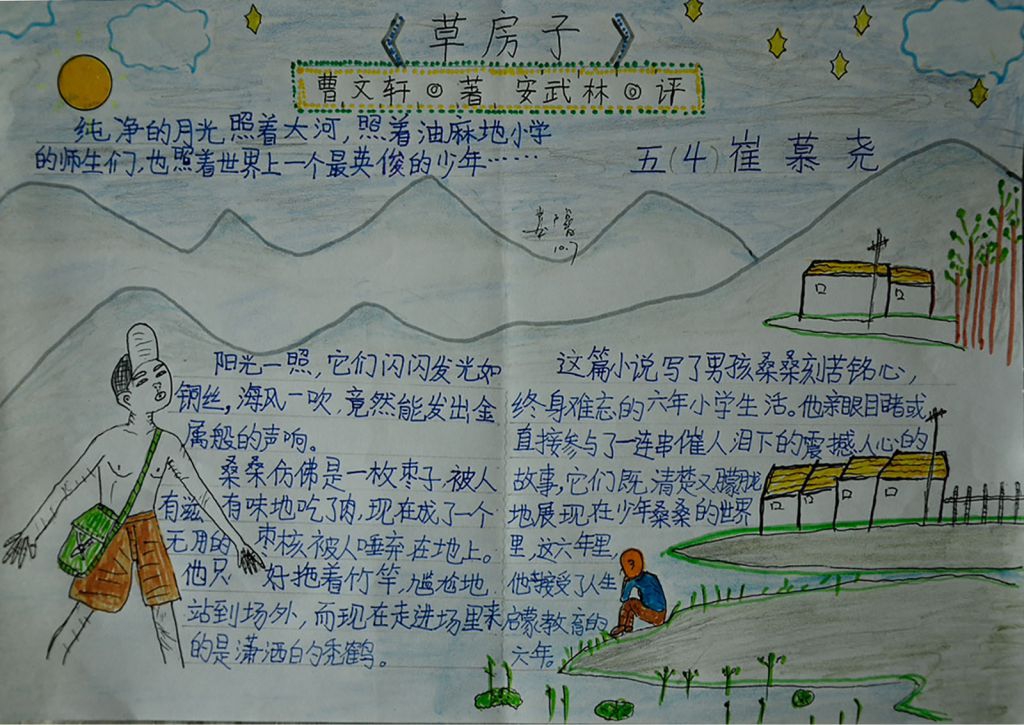 《草房子》
曹文轩◎著 安武林◎评
纯净的月光照着大河,照着油麻地小学
的师生们,也照着世界上一个最英俊的少年……
五(4)崔慕尧
10.7
阳光一照,它们闪闪发光如
钢丝,海风一吹,竟然能发出金
属般的声响。
桑桑仿佛是一枚枣子,被人
有滋有味地吃了肉,现在成了一个
无用的枣核被人唾弃在地上。
他只好拖着竹竿,尴尬地
站到场外,而现在走进场里来
的是潇洒的秃鹤。
这篇小说写了男孩桑桑刻苦铭心,
终身难忘的六年小学生活。他亲眼目睹或
直接参与了一连串催人泪下的震撼人心的
故事,它们既清楚又朦胧
地展现在少年桑桑的世界
里,这六年里,
他接受了人生
启蒙教育的
六年。